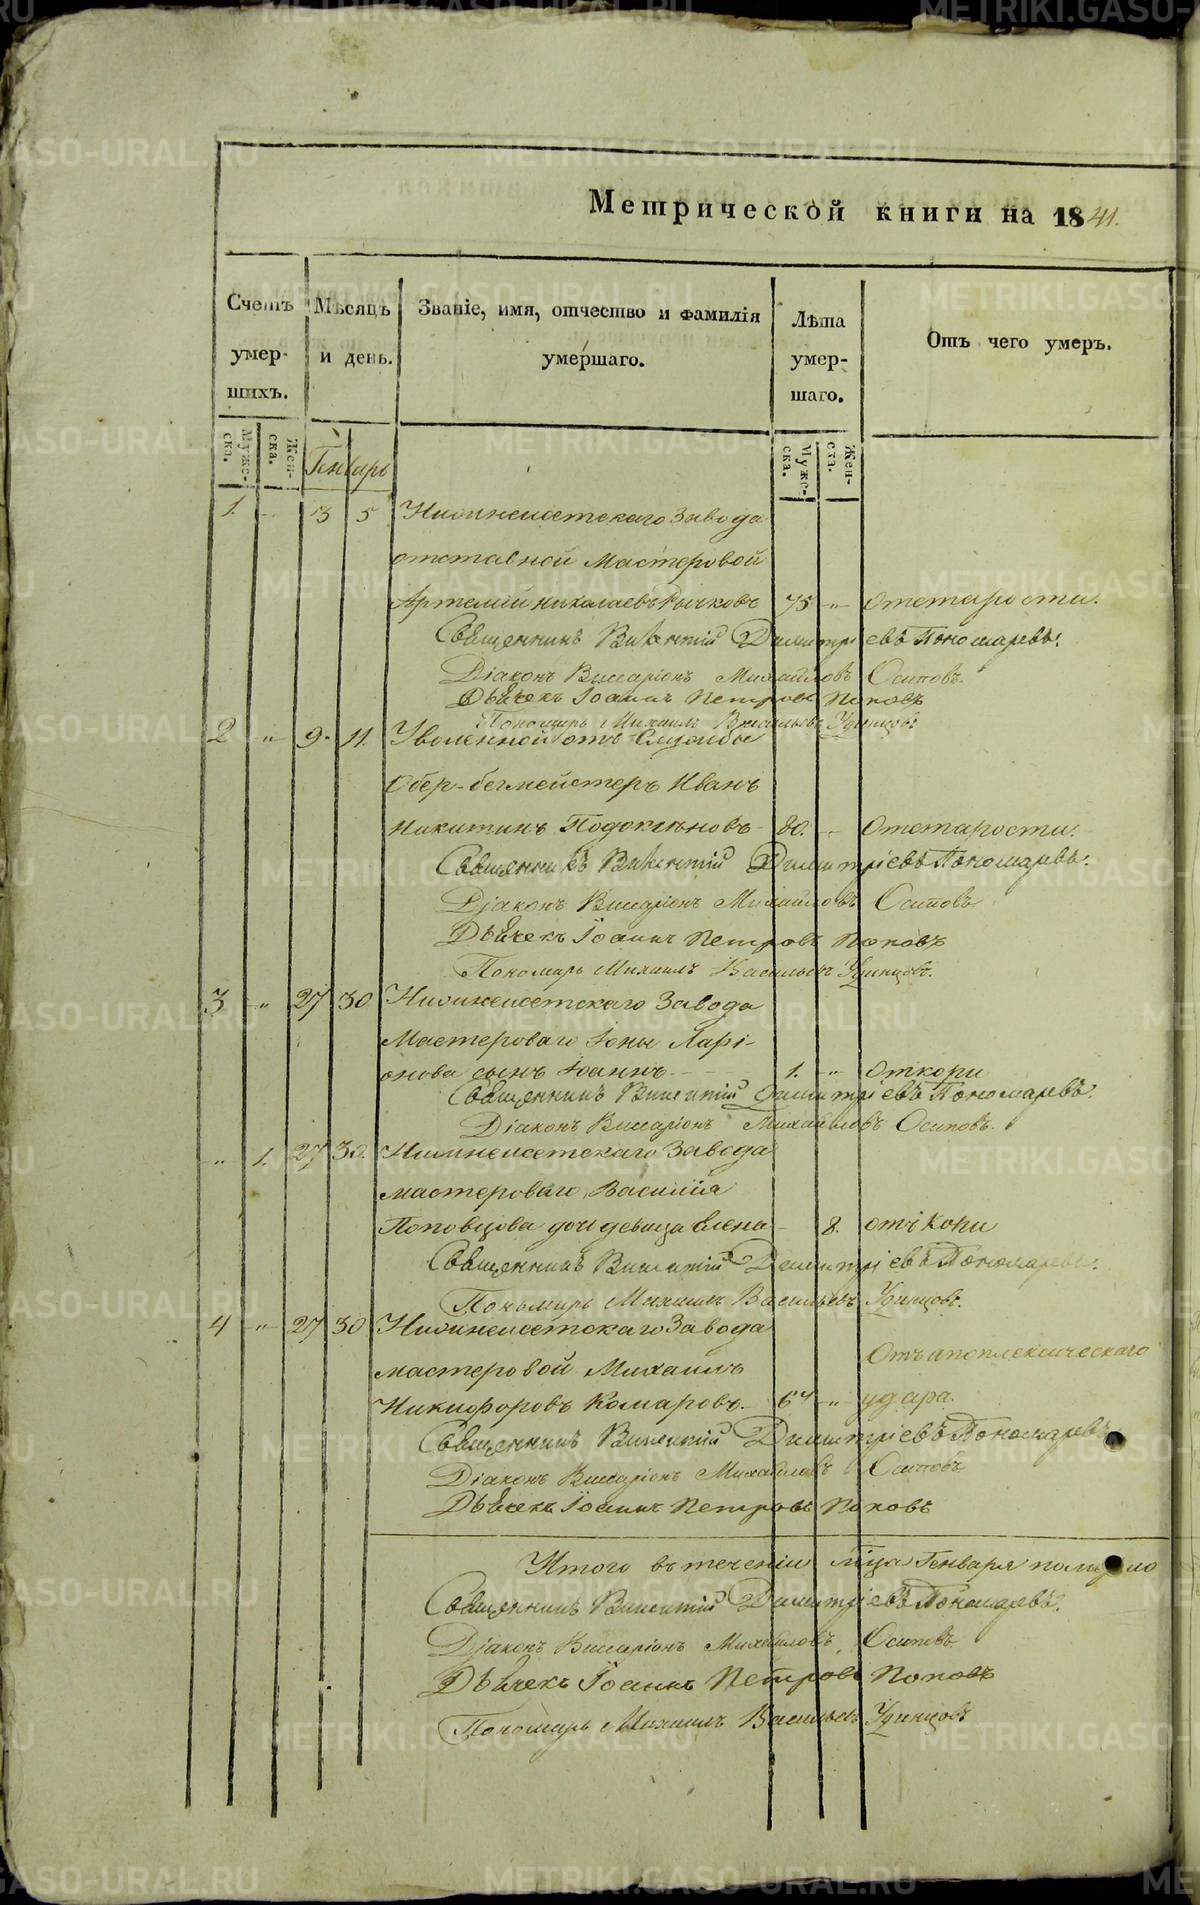 Метрической книги на 1841.
Счетъ умер- шихъ.
Мѣсяцъ и день.
Званіе, имя, отчество и фамилія умершаго.
Лѣта умер- шаго.
Отъ чего умеръ.
Муже- ска.
Жен- ска.
Генварь
Муже- ска.
Жен- ска.
1. 3 5 Нижнеисетскаго Завода
отставной Мастеровой
Артемій Николаевъ Рычковъ 75 „ Отстарости.
Священникъ Викентій Димитріевъ Пономаревъ.
Діаконъ Виссаріонъ Михайловъ Осиповъ.
Дьячекъ Іоаннъ Петровъ Поповъ
Пономарь Михаилъ Васильевъ Удинцовъ
2 „ 9. 11. Уволенной отъ Службы
Обер-бегмейстеръ Иванъ
Никитинъ Подоксѣновъ 80. Отстарости.
Священникъ Викентій Димитріевъ Пономаревъ.
Діаконъ Виссаріонъ Михайловъ Осиповъ
Дьячекъ Іоаннъ Петровъ Поповъ
Пономарь Михаилъ Васильевъ Удинцовъ.
3 „ 27 30 Нижнеисетскаго Завода
Мастероваго Іоны Ларі-
онова сынъ Іоаннъ 1. „ Откори
Священникъ Викентій Димитріевъ Пономаревъ.
Діаконъ Виссаріонъ Михайловъ Осиповъ.
„ 1. 27 30. Нижнеисетскаго Завода
мастероваго Василія
Поповцова дочь девица Елена 8. отъ Кори
Священникъ Викентій Димитріевъ Пономаревъ.
Пономарь Михаилъ Васильевъ Удинцовъ.
4 „ 27 30 Нижнеисетскаго Завода
мастеровой Михаилъ Отъ апоплексическаго
Никифоровъ Комаровъ. 64 „ удара.
Священникъ Викентій Димитріевъ Пономаревъ
Діаконъ Виссаріонъ Михайловъ Осиповъ
Дьячекъ Іоаннъ Петровъ Поповъ
Итого въ теченіи м҃ца Генваря померло
Священникъ Викентій Димитріевъ Пономаревъ.
Діаконъ Виссаріонъ Михайловъ Осиповъ
Дьячекъ Іоаннъ Петровъ Поповъ
Пономарь Михаилъ Васильевъ Удинцовъ
METRIKI.GASO-URAL.RU